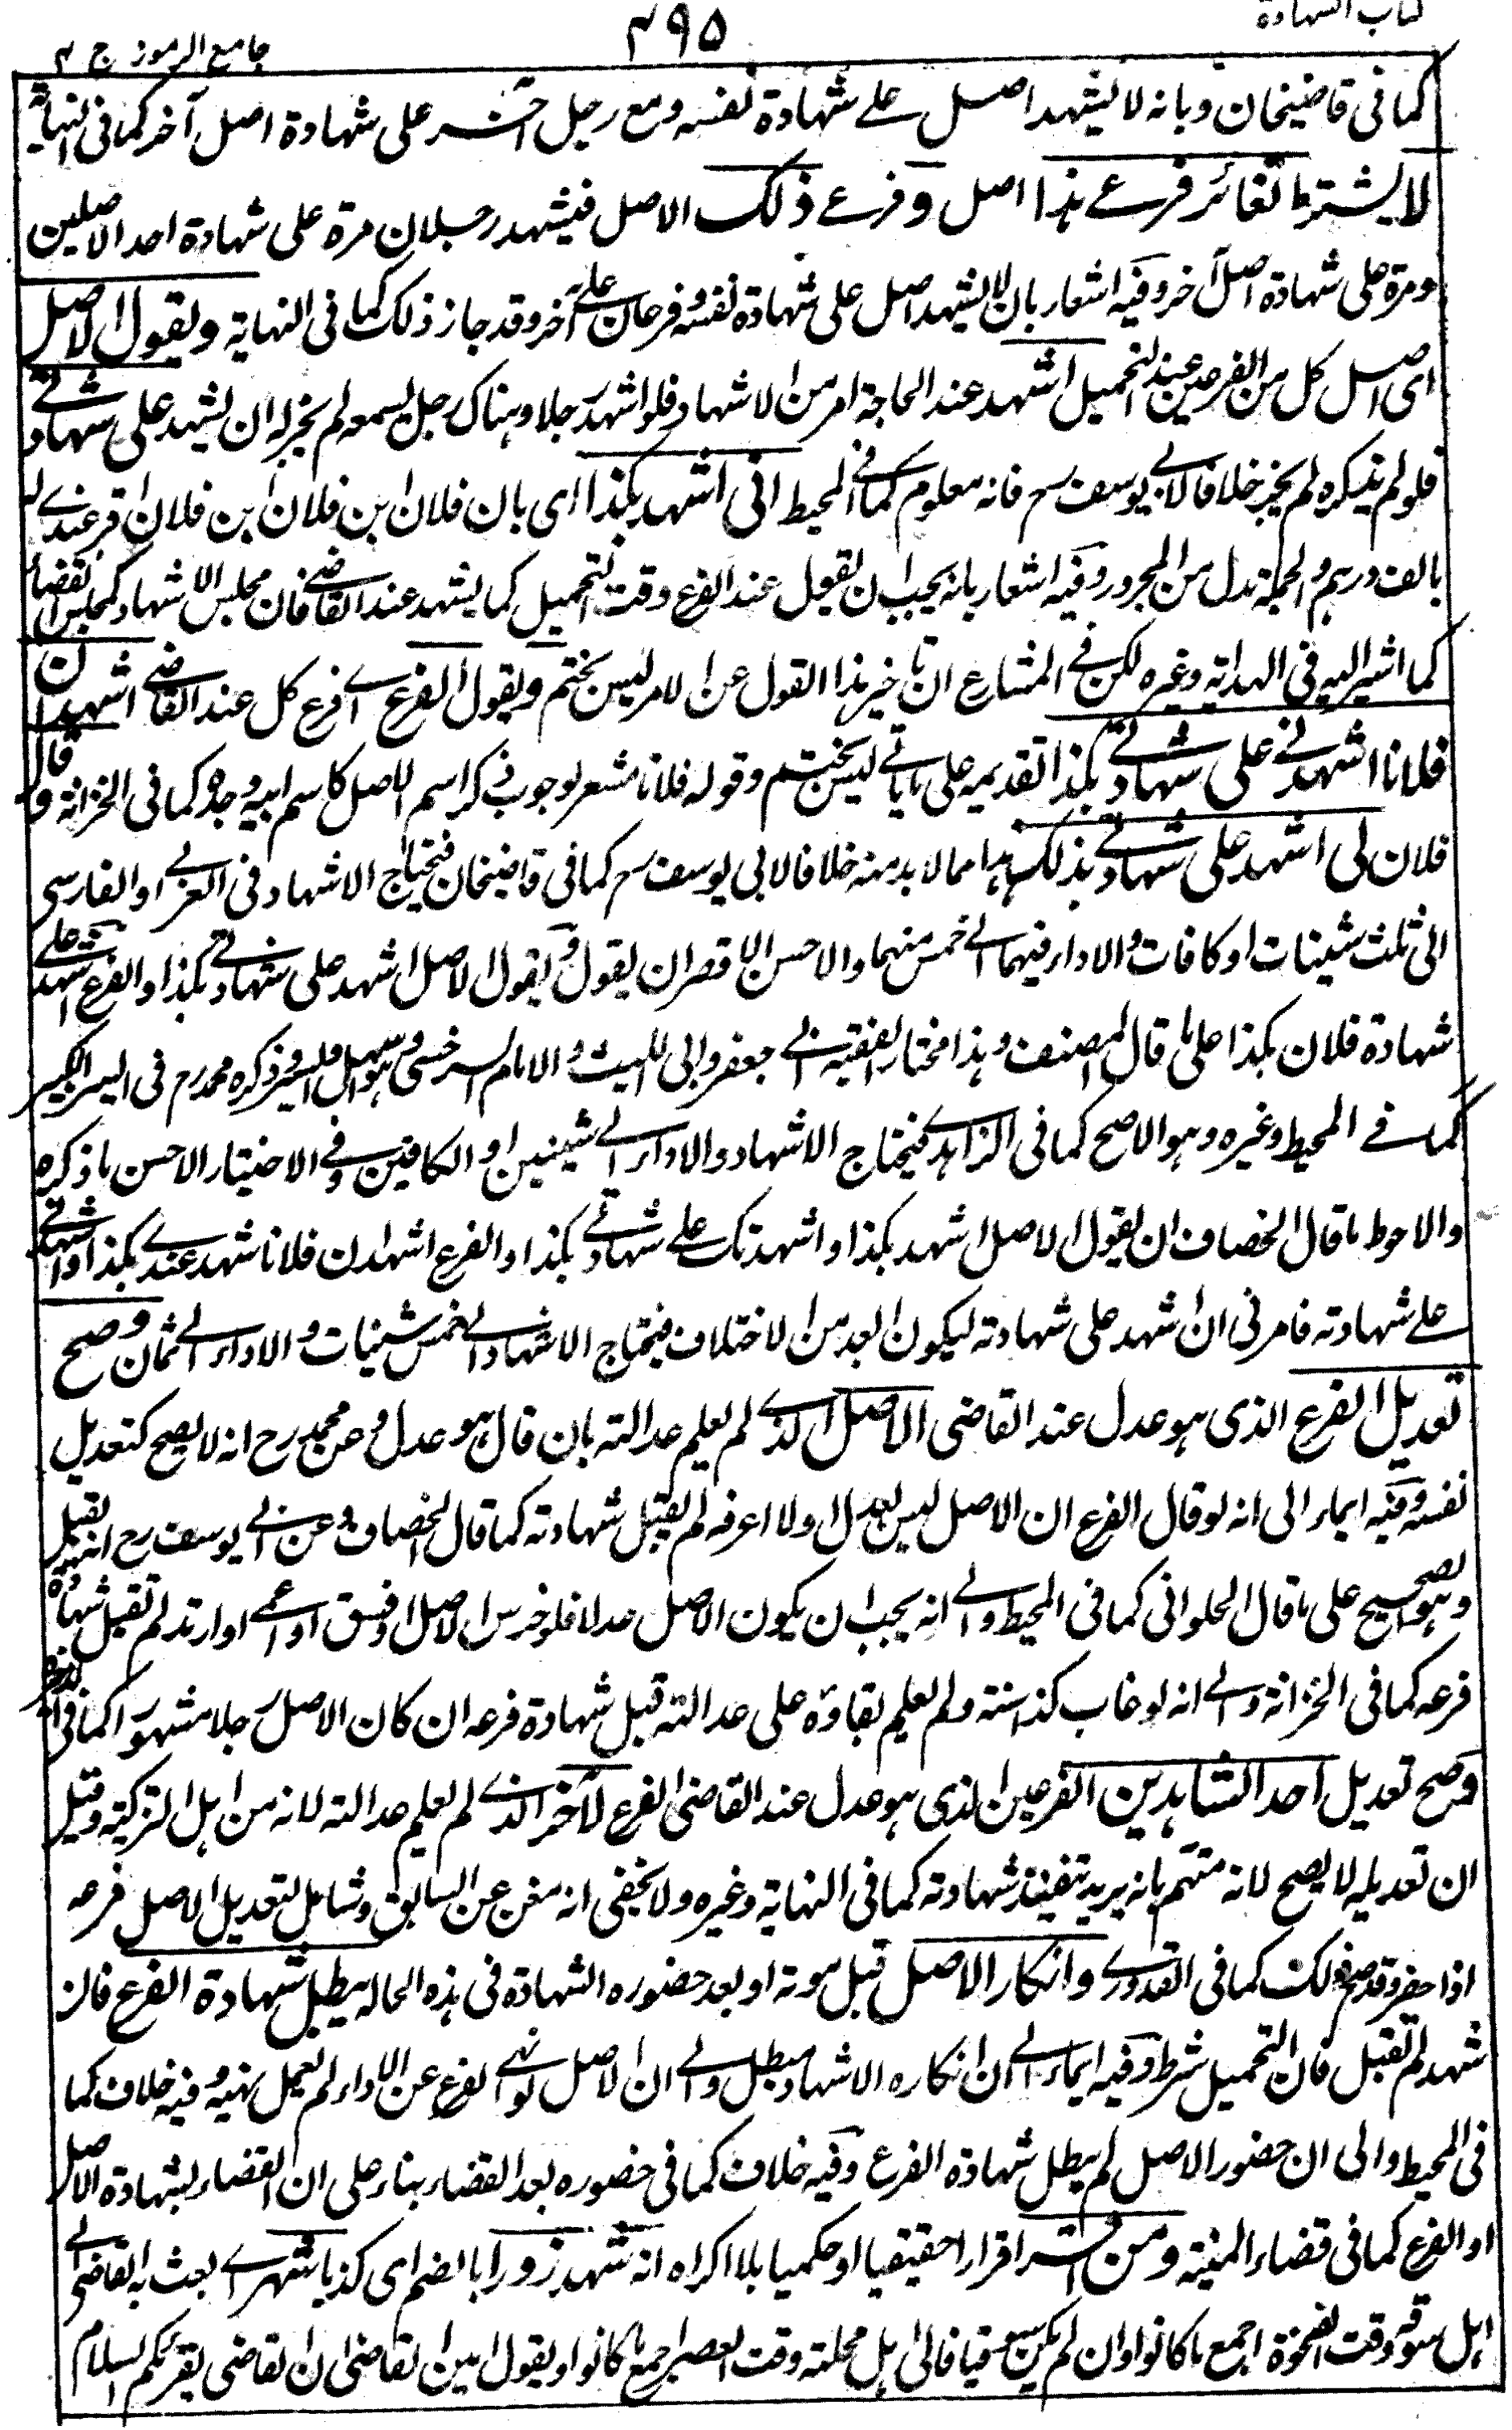 كتاب الشهادة
٤٩٥
جامع الرموز ج ٢
كما فى قاضيخان وبانه لا يشهد اصل علے شهادة نفسه ومع رجل آخر على شهادة اصل آخر كما فى النهاية
لا يشترط تغائر فرعے هذا اصل وفرعے ذلك الاصل فيشهد رجلان مرة على شهادة احد الاصلين
ومرة على شهادة اصل آخر وفيه اشعار بان لا يشهد اصل على شهادة نفسه وفرعان علے آخر وقد جاز ذلك كما فى النهاية ويقول الاصل
اى اصل كل من الفرعين عند التحميل اشهد عند الحاجة امر من الاشهاد فلو اشهد رجلا وهناك رجل يسمعه لم يجز له ان يشهد على شهادتے
فلو لم يذكره لم يجز خلافا لابے يوسف رح فانه معلوم كما فے المحيط انى اشهد بكذا اى بان فلان ابن فلان ابن فلان اقر عندے له
بالف درهم والجملة بدل من المجرور وفيه اشعار بانه يجب ان يقول عند الفرع وقت التحميل كما يشهد عند القاضے فان مجلس الاشهاد كمجلس القضاء
كما اشير اليه فى الهداية وغيره لكن فے المشارع ان تاخير هذا القول عن الامر ليس بختم ويقول الفرع اے فرع كل عند القاضے اشهد ان
فلانا اشهدنے على شهادتے بكذا تقديمه على ما ياتے ليس بختم وقوله فلانا مشعر لوجوب ذكر اسم الاصل كاسم ابيه وجده كما فى الخزانة وقال
فلان لى اشهد على شهادتے بذلك هذا مما لا بد منه خلافا لابى يوسف رح كما فى قاضيخان فيحتاج الاشهاد فى العربے او الفارسى
الى ثلث شينات او كافات والاداء فيهما الے خمس منهما والاحسن الاقصر ان يقول ويقول الاصل اشهد على شهادتے بكذا والفرع اشهد علے
شهادة فلان بكذا على ما قال المصنف وهذا مختار الفقيه ابے جعفر وابى الليث والامام السرخسى وهو اسهل وايسر ذكره محمد رح فى السير الكبير
كما فے المحيط وغيره وهو الاصح كما فى الزاهدے فيحتاج الاشهاد والاداء الے شينين او الكافين وفے الاختيار الاحسن ما ذكره
والاحوط ما قال الخصاف ان يقول الاصل اشهد بكذا واشهدتك علے شهادتے بكذا والفرع اشهد ان فلانا شهد عندے بكذا واشهدنے
علے شهادته فامرنى ان اشهد على شهادته ليكون ابعد من الاختلاف فيحتاج الاشهاد الے خمس شينات والاداء الے ثمان وصح
تعديل الفرع الذى هو عدل عند القاضى الاصل الذے لم يعلم عدالته بان قال هو عدل وعن محمد رح انه لا يصح كتعديل
نفسه وفيه ايماء الى انه لو قال الفرع ان الاصل ليس بعدل او لا اعرفه لم يقبل شهادته كما قال الخصاف وعن ابے يوسف رح انه يقبل
وهو الصحيح على ما قال الحلوانى كما فى المحيط والے انه يجب ان يكون الاصل عدلا فلو خرس الاصل او فسق او عمے او ارتد لم تقبل شهادة
فرعه كما فى الخزانة والے انه لو غاب كذا سنة ولم يعلم بقاؤه على عدالته قبل شهادة فرعه ان كان الاصل رجلا مشهورا كما فى
وصح تعديل احد الشاهدين الفرعين الذى هو عدل عند القاضى الفرع الآخر الذے لم يعلم عدالته لانه من اهل التزكية وقيل
ان تعديله لا يصح لانه متهم بانه يريد تنفيذ شهادته كما فى النهاية وغيره ولا يخفى انه مغن عن السابق وشامل لتعديل الاصل فرعه
اذا حضر وقد صح ذلك كما فى القدورے وانكار الاصل قبل موته او بعد حضوره الشهادة فى هذه الحالة يبطل شهادة الفرع فان
شهد لم تقبل فان التحميل شرط وفيه ايماء الے ان انكاره الاشهاد مبطل والے ان الاصل لو نهى الفرع عن الاداء لم يعمل نهيه وفيه خلاف كما
فى المحيط والى ان حضور الاصل لم يبطل شهادة الفرع وفيه خلاف كما فى حضوره بعد القضاء بناء على ان القضاء بشهادة الاصل
او الفرع كما فى قضاء المنية ومن اقر اقرارا حقيقيا او حكميا بلا اكراه انه شهد زورا بالضم اى كذبا شهر اے بعث به القاضى الے
اهل سوقه وقت الضحوة اجمع ما كانوا وان لم يكن سوقيا فالى اهل محلته وقت العصر اجمع ما كانوا ويقول امين القاضى ان القاضى يقرئكم السلام